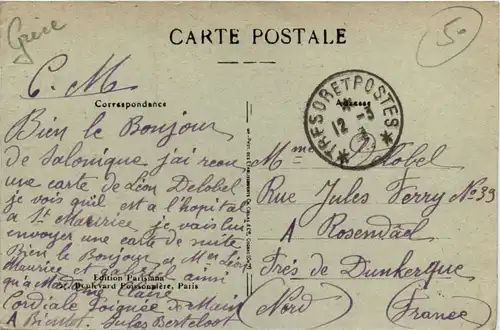 Grèce
5-
CARTE POSTALE
C. M
Correspondance
Adresse
TRESOR ET POSTES
12
Bien le Bonjour
de Salonique j'ai recu
une carte de Léon Delobel
je vois quil est a l'hopital
a St Maurice je vais lui
envoyer une carte de suite
Bien le Bonjour a Mer Léon
Maurice et gabriel ainsi
qu'a Marie
Cordiale Poignée de Main
A Bientot. Jules Berteloot
Edition Parisiana
Boulevard Poissonnière, Paris
Mme Delobel
Rue Jules Ferry No 39
A Rosendäel
Près de Dunkerque
(Nord) France